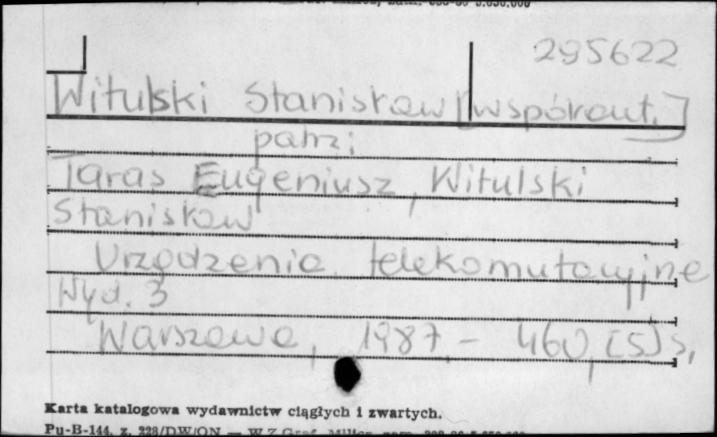 295622
Witulski Stanisław [współaut.]
patrz:
Taras Eugeniusz, Witulski
Stanisław
Urządzenia telekomutacyjne
Wyd. 3
Warszawa, 1987. - 460, [5] s.
Karta katalogowa wydawnictw ciągłych i zwartych.
Pu-B-144, z. 228/DW/ON —